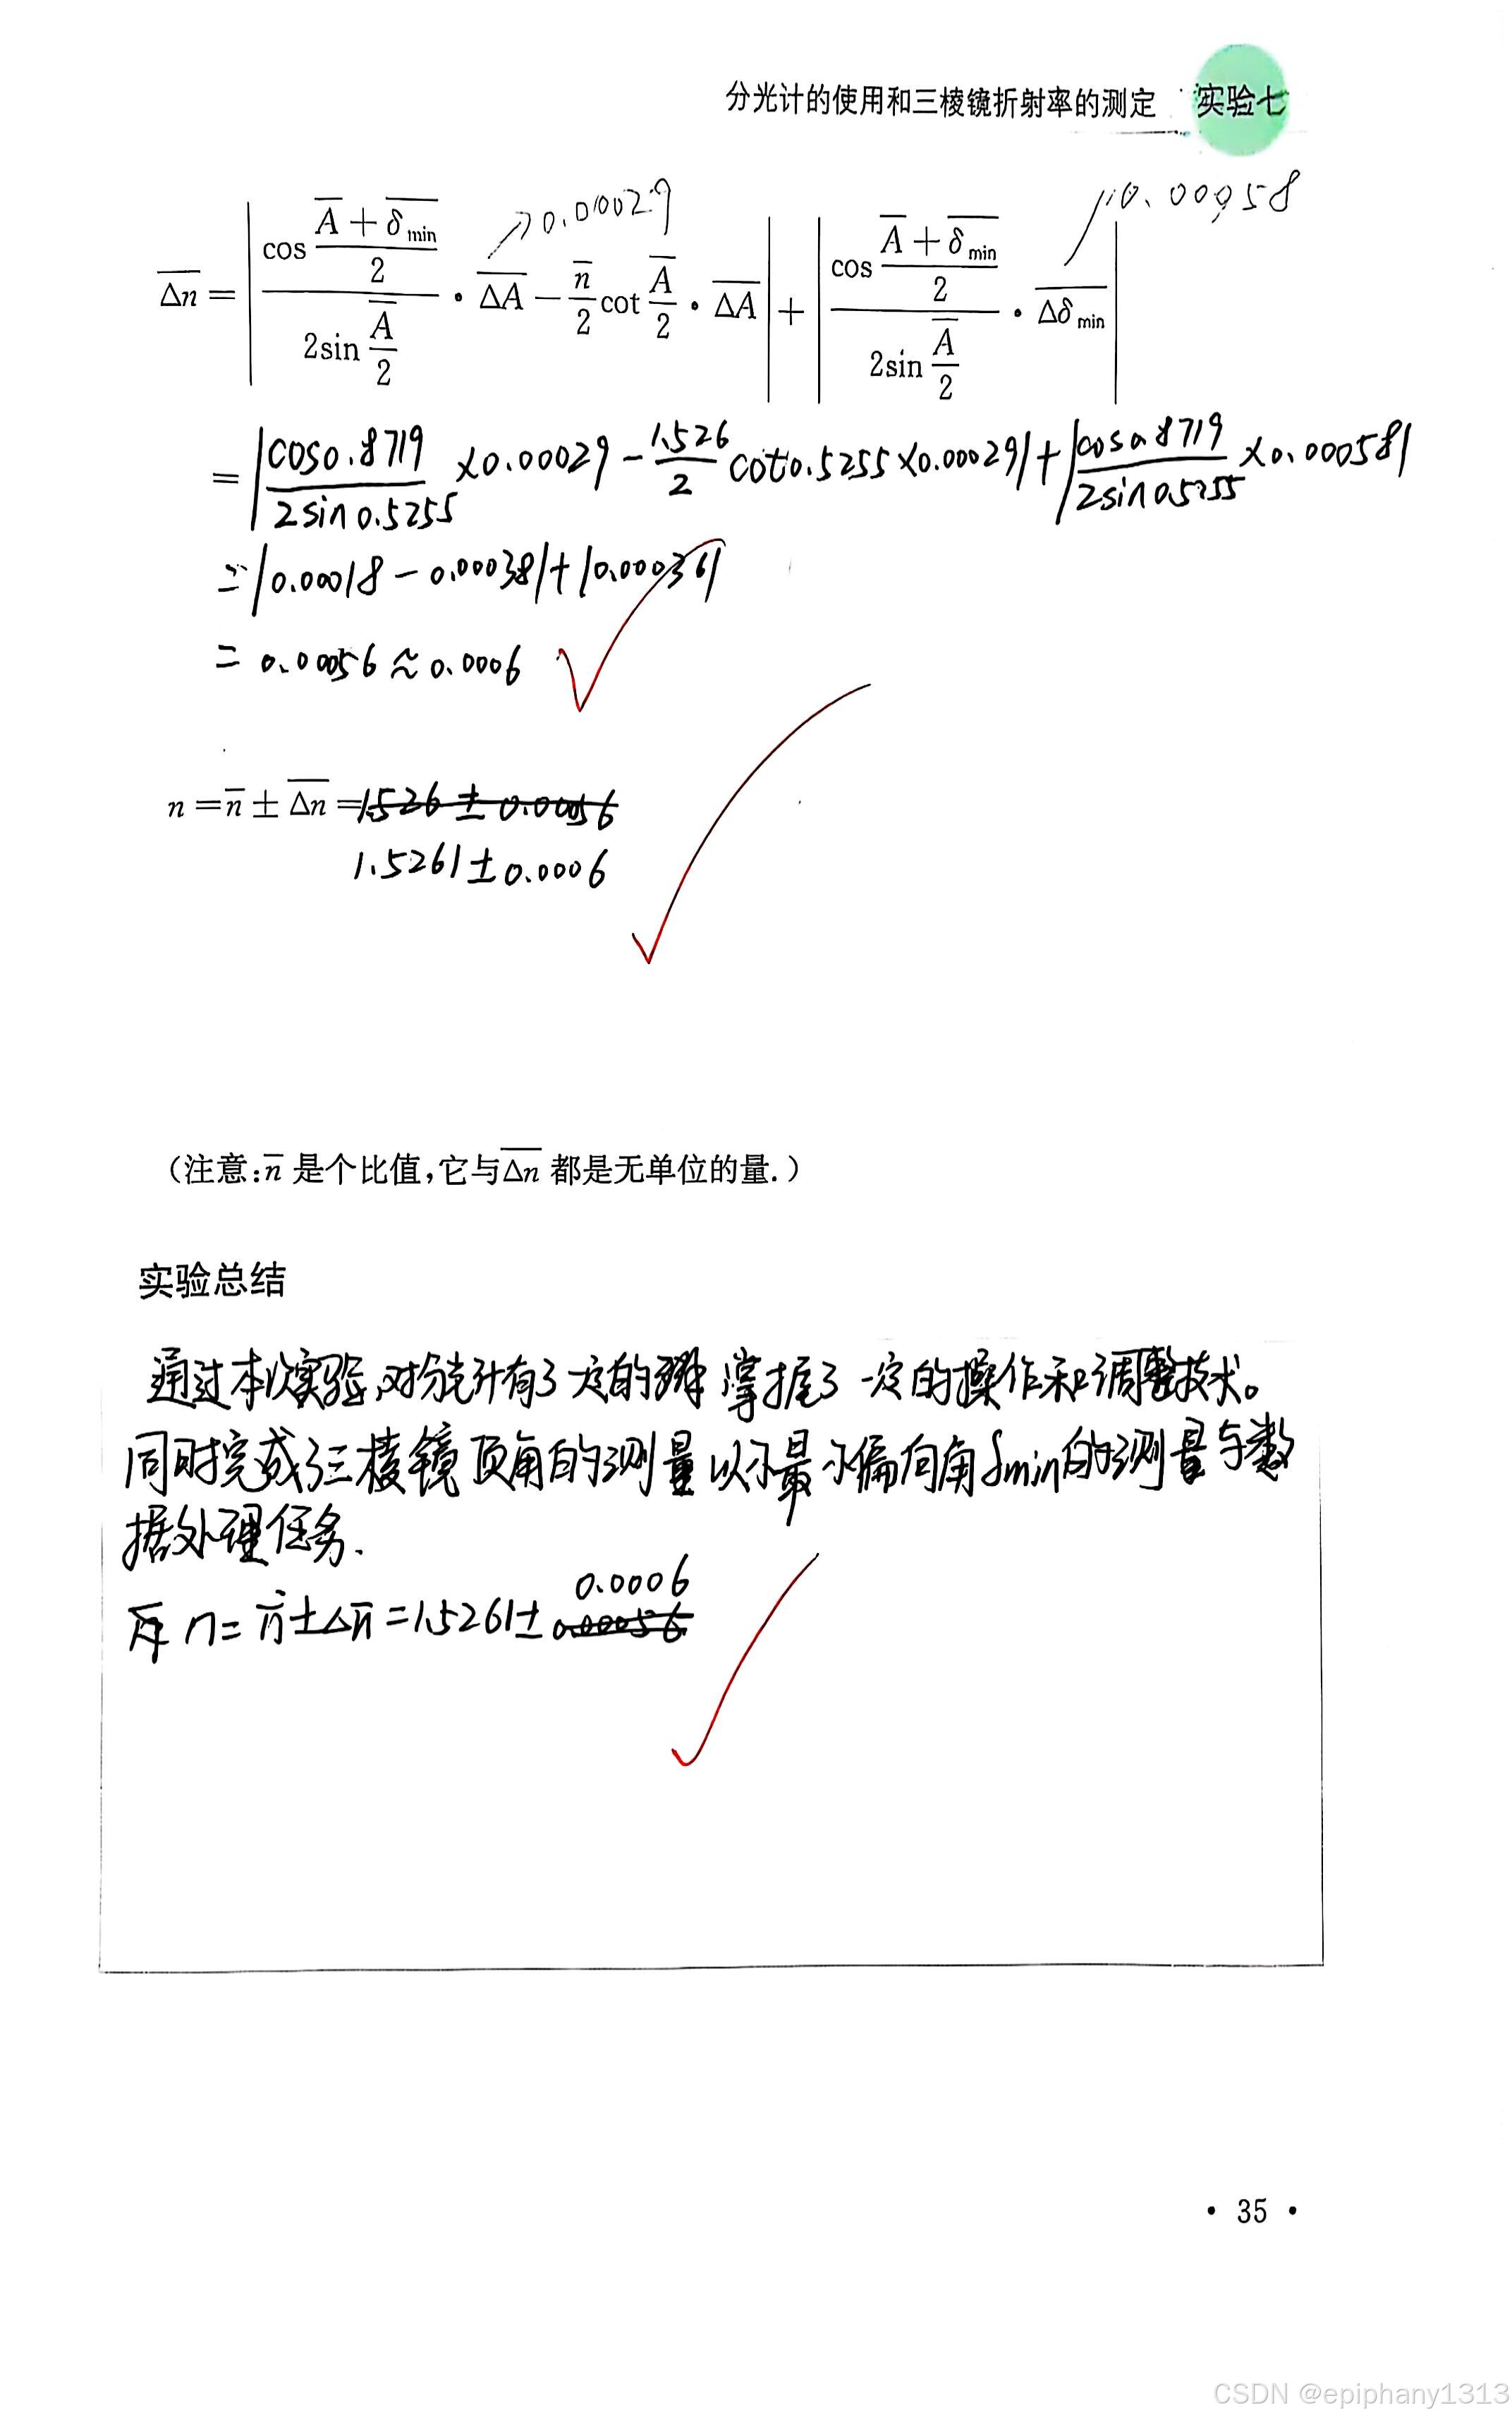 分光计的使用和三棱镜折射率的测定 实验七
↗0.00029
↗0.00058
\overline{Δn} = |cos((\overline{A}+\overline{δ_min})/2)/(2sin(\overline{A}/2)) · \overline{ΔA} − (\overline{n}/2)cot(\overline{A}/2) · \overline{ΔA}| + |cos((\overline{A}+\overline{δ_min})/2)/(2sin(\overline{A}/2)) · \overline{Δδ_min}|
= |cos0.8719/(2sin0.5255) ×0.00029 − (1.526/2) cot0.5255×0.00029| + |cos0.8719/(2sin0.5255) ×0.00058|
= |0.00018 − 0.00038| + |0.00036|
= 0.00056 ≈ 0.0006
n = \overline{n} ± \overline{Δn} = 1.526 ± 0.00056
1.5261 ± 0.0006
(注意:\overline{n} 是个比值,它与\overline{Δn} 都是无单位的量.)
实验总结
通过本次实验,对分光计有了一定的理解 掌握了一定的操作和调整技术。
同时完成了三棱镜顶角的测量以及最小偏向角δmin的测量与数
据处理任务.
0.0006
n = \overline{n} ± Δ\overline{n} = 1.5261 ± 0.00056
· 35 ·
CSDN @epiphany1313